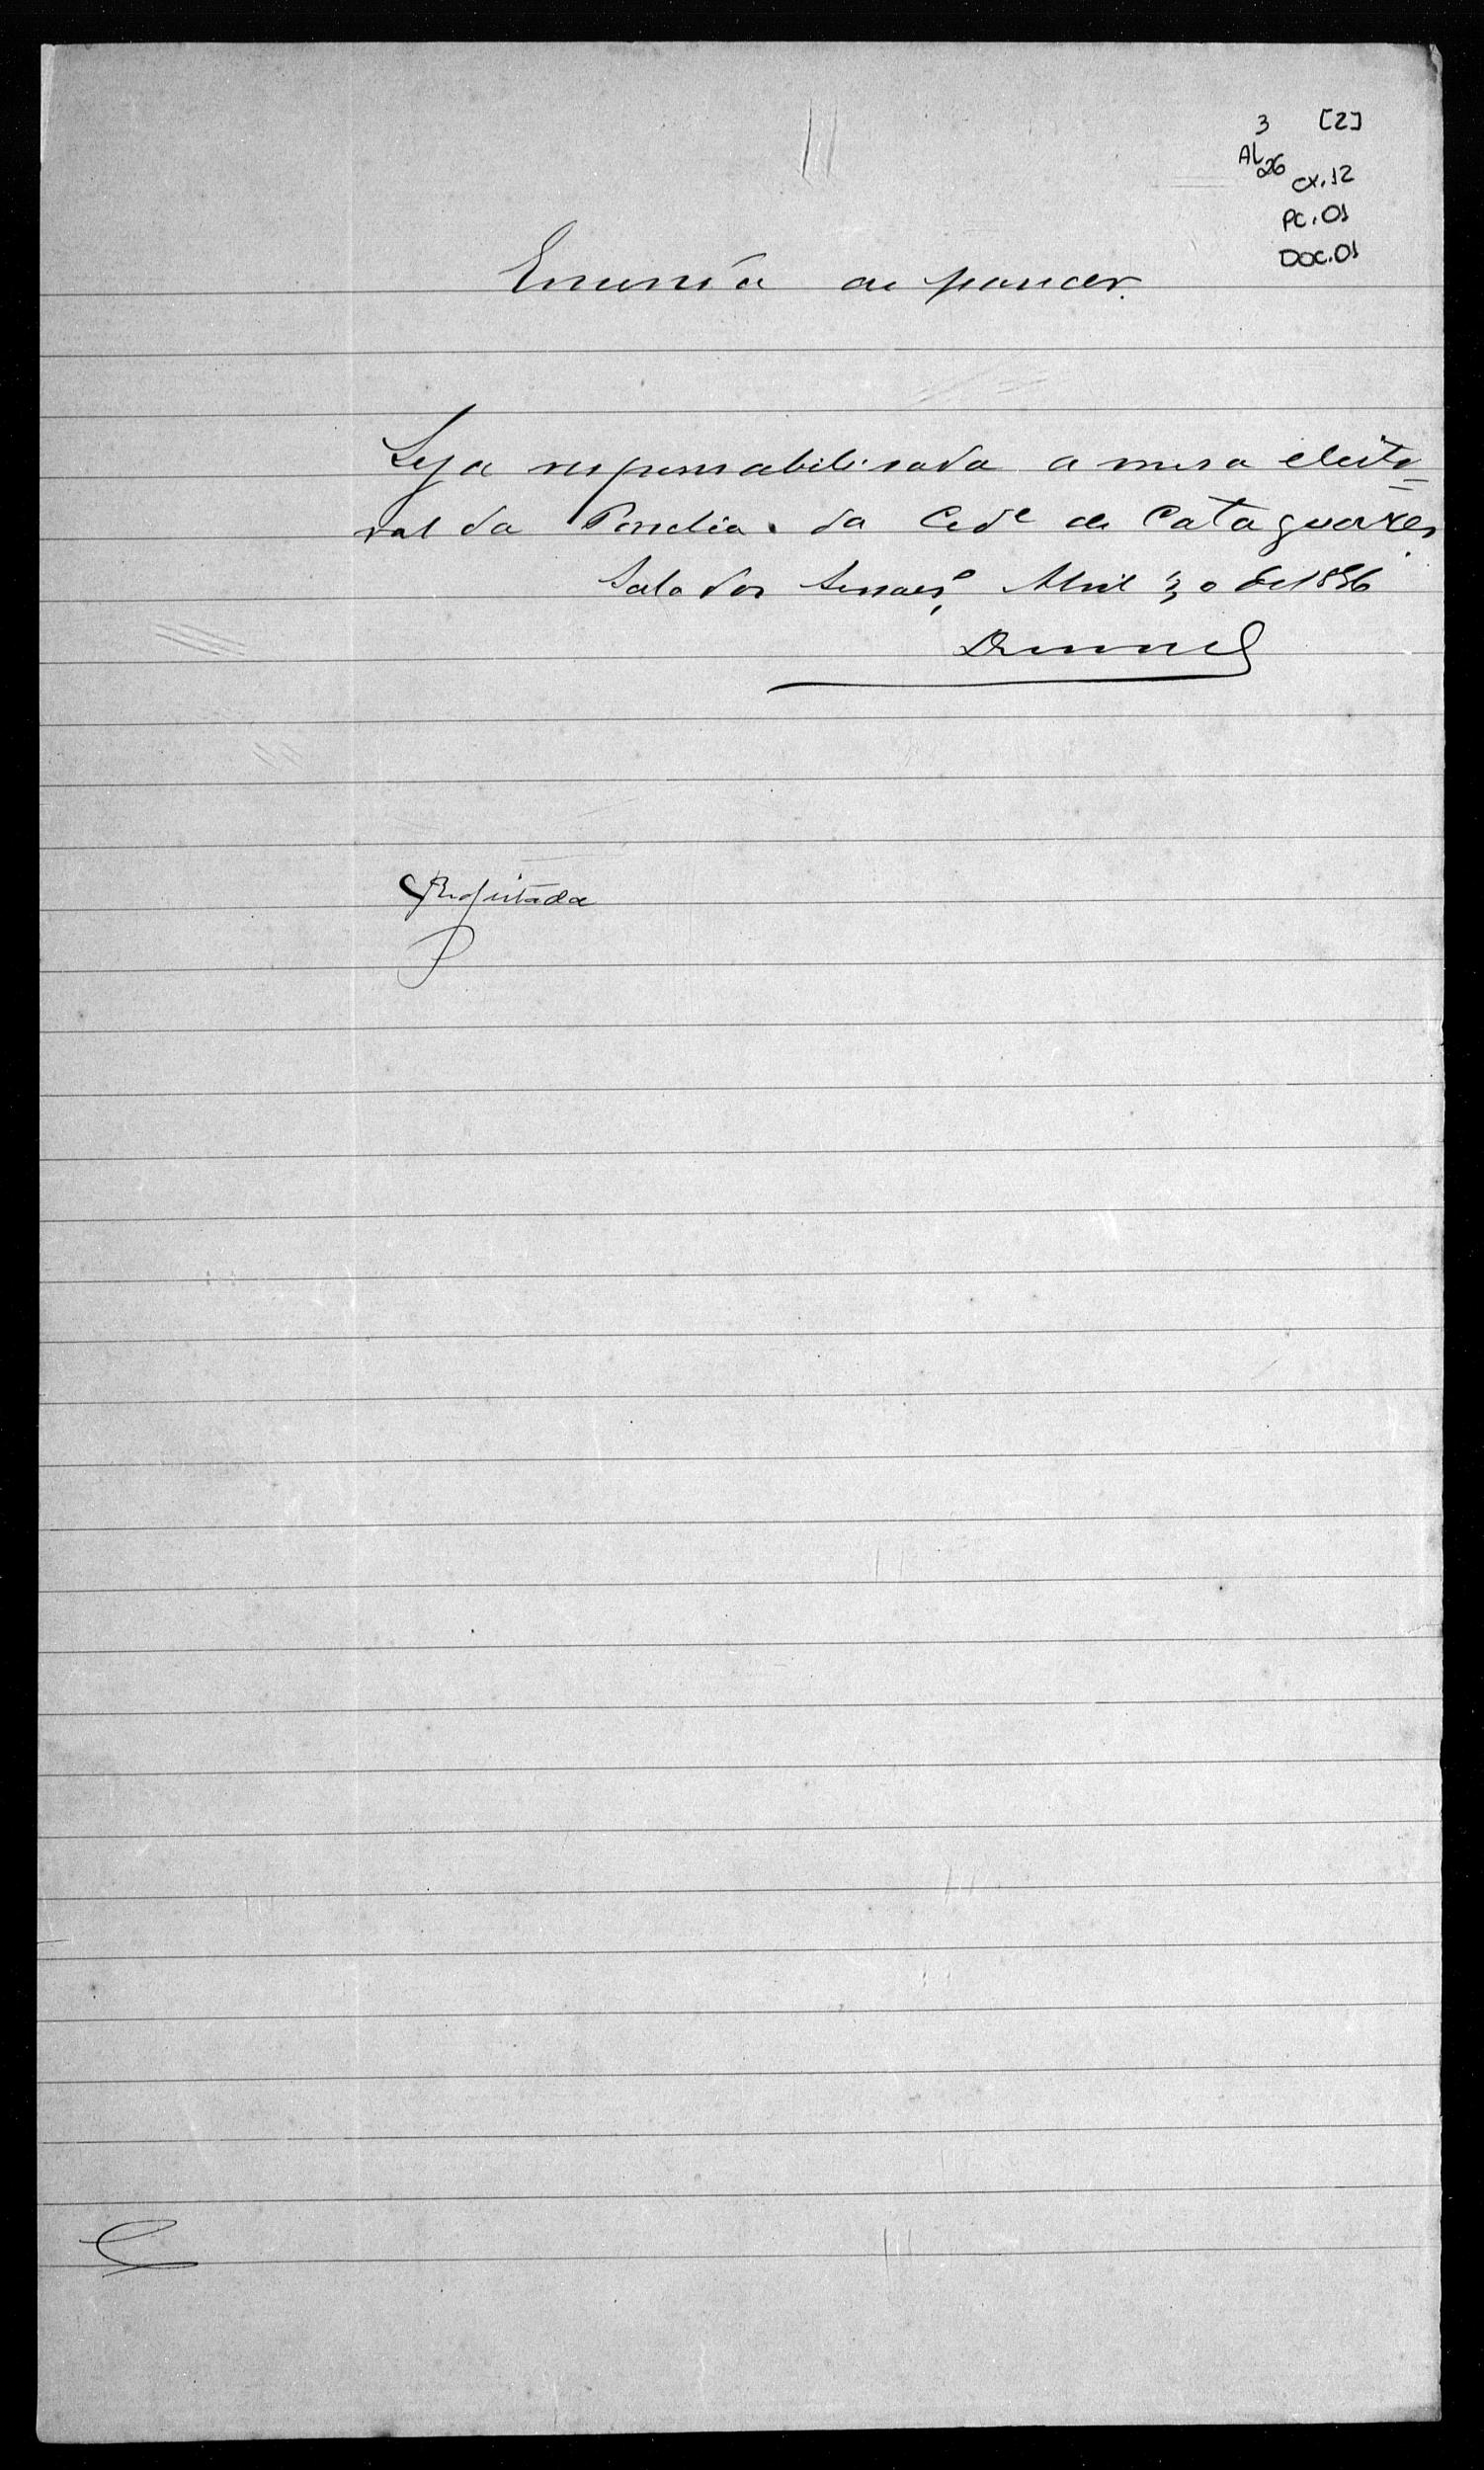 3 [2]
AL 26 cx.12
PC.01
DOC.01
Emenda ao parecer.
Seja responsabilisada a mesa eleito=
ral da da Cid.e de Cataguazes
Sala das Sessões, Abril 30 de 1896
Rejeitada